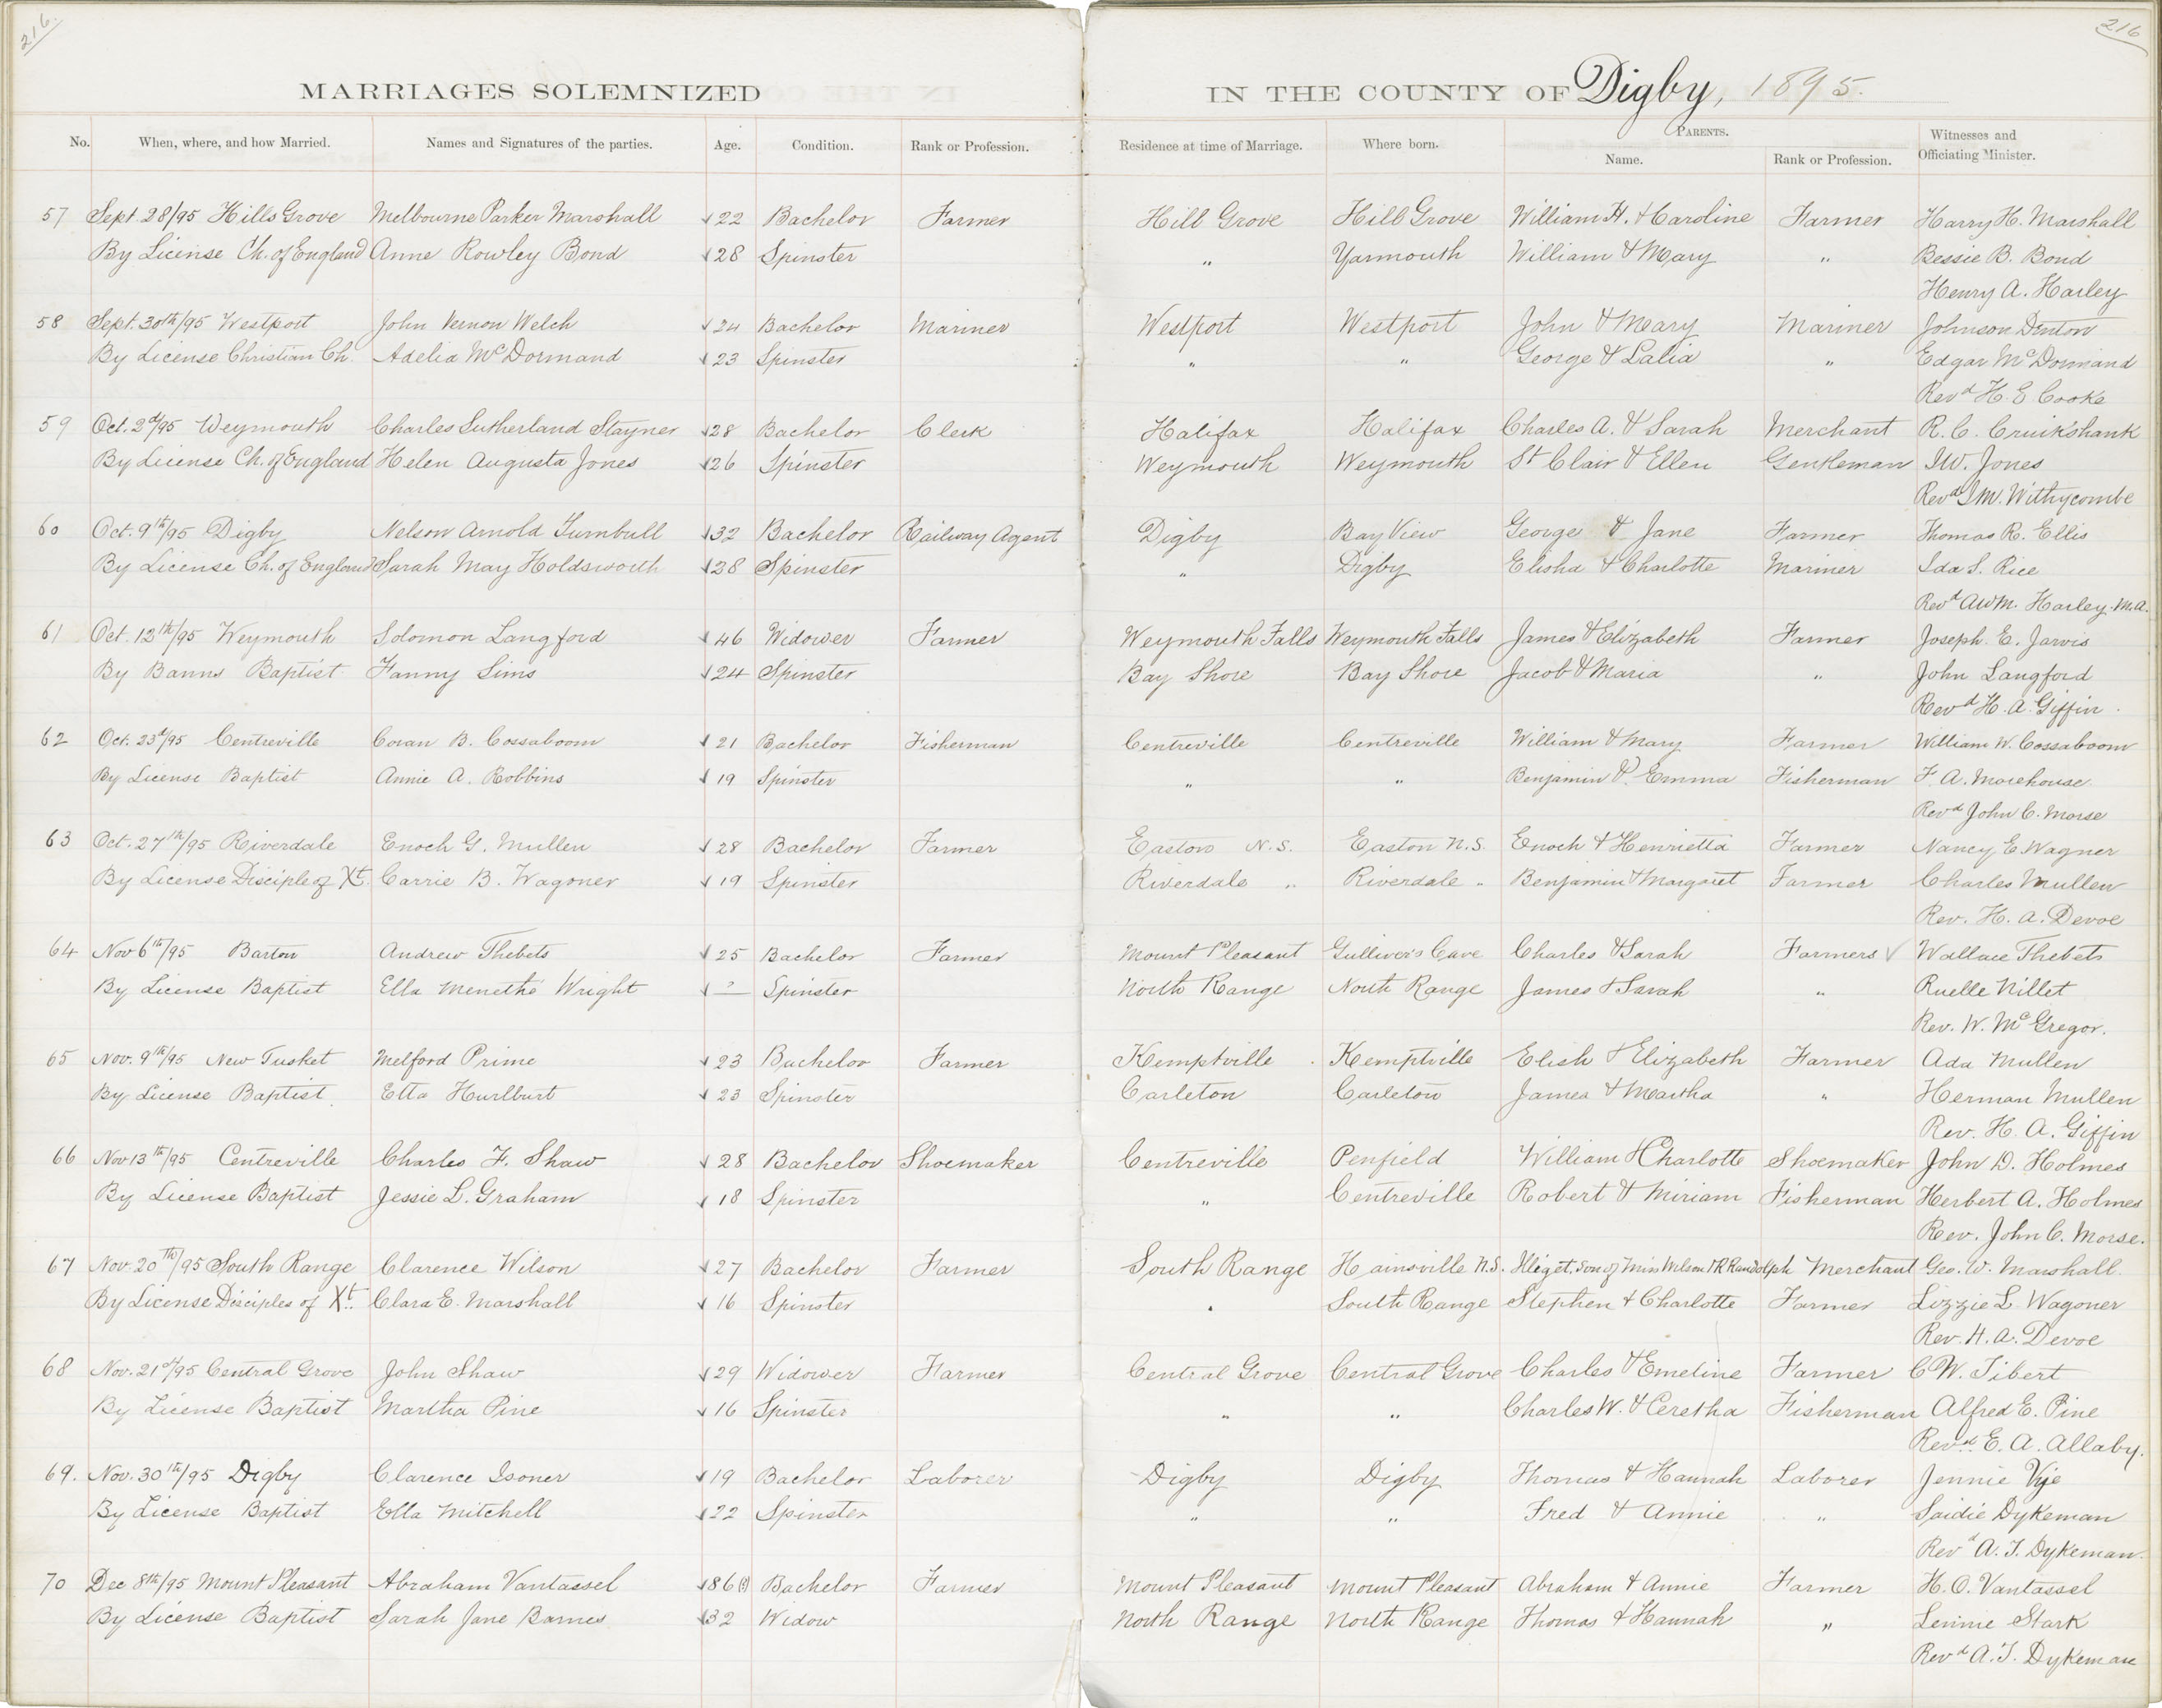 216.
216
MARRIAGES SOLEMNIZED IN THE COUNTY OF Digby, 1895.
No. When, where, and how Married. Names and Signatures of the parties. Age. Condition. Rank or Profession. Residence at time of Marriage. Where born. PARENTS. Name. Rank or Profession. Witnesses and Officiating Minister.
57 Sept 28/95 Hills Grove Melbourne Parker Marshall √22 Bachelor Farmer Hill Grove Hill Grove William H. & Caroline Farmer Harry H. Marshall
By License Ch. of England Anne Rowley Bond √28 Spinster " Yarmouth William & Mary " Bessie B. Bond
Henry A. Harley
58 Sept. 30th/95 Westport John Vernon Welch √24 Bachelor Mariner Westport Westport John & Mary Mariner Johnson Denton
By License Christian Ch. Adelia McDormand √23 Spinster " " George & Lalia " Edgar McDormand
Revd H. E Cooke
59 Oct. 2d/95 Weymouth Charles Sutherland Stayner √28 Bachelor Clerk Halifax Halifax Charles A. & Sarah Merchant R. C. Cruikshank
By License Ch. of England Helen Augusta Jones √26 Spinster Weymouth Weymouth St Clair & Ellen Gentleman J.W. Jones
Revd J M. Withycombe
60 Oct. 9th/95 Digby Nelson Arnold Turnbull √32 Bachelor Railway Agent Digby Bay View George & Jane Farmer Thomas R. Ellis
By License Ch. of England Sarah May Holdsworth √28 Spinster " Digby Elisha & Charlotte Mariner Ida S. Rice
Revd AWM. Harley. M.A.
61 Oct. 12th/95 Weymouth Solomon Langford √46 Widower Farmer Weymouth Falls Weymouth Falls James & Elizabeth Farmer Joseph. E. Jarvis
By Banns Baptist Fanny Sims √24 Spinster Bay Shore Bay Shore Jacob & Maria " John Langford
Revd H. A. Giffin.
62 Oct. 23d/95 Centreville Coran B. Cossaboom √21 Bachelor Fisherman Centreville Centreville William & Mary Farmer William W. Cossaboom
By License Baptist Annie A. Robbins √19 Spinster " " Benjamin & Emma Fisherman F. A. Morehouse
Revd John C. Morse
63 Oct. 27th/95 Riverdale Enoch G. Mullen √28 Bachelor Farmer Easton N.S. Easton N.S. Enoch & Henrietta Farmer Nancy E. Wagner
By License Disciple of Xt. Carrie B. Wagoner √19 Spinster Riverdale " Riverdale " Benjamin & Margaret Farmer Charles Mullen
Rev. H. A. Devoe
64 Nov 6th/95 Barton Andrew Thebets √25 Bachelor Farmer Mount Pleasant Gulliver's Cave Charles & Sarah Farmers √ Wallace Thebets
By License Baptist Ella Menetha Wright √? Spinster North Range North Range James & Sarah " Ruelle Nillet
Rev. W. McGregor.
65 Nov. 9th/95 New Tusket Melford Prime √23 Bachelor Farmer Kemptville Kemptville Elish & Elizabeth Farmer Ada Mullen
By License Baptist. Etta Hurlburt √23 Spinster Carleton Carleton James & Martha " Herman Mullen
Rev. H. A. Giffin
66 Nov 13th/95 Centreville Charles F. Shaw √28 Bachelor Shoemaker Centreville Penfield William & Charlotte Shoemaker John D. Holmes
By License Baptist Jessie L. Graham √18 Spinster " Centreville Robert & Miriam Fisherman Herbert A. Holmes
Rev. John C. Morse.
67 Nov. 20th/95 South Range Clarence Wilson √27 Bachelor Farmer South Range Hainsville N.S. Illiget. son of Miss Wilson & R Randolph Merchant Geo. W. Marshall.
By License Disciples of Xt. Clara E. Marshall √16 Spinster " South Range Stephen & Charlotte Farmer Lizzie L Wagoner
Rev. H. A. Devoe
68 Nov. 21st/95 Central Grove John Shaw √29 Widower Farmer Central Grove Central Grove Charles & Emeline Farmer C W. Tibert
By License Baptist Martha Pine √16 Spinster " " Charles W. & Ceretha Fisherman Alfred E. Pine
Revd. E. A. Allaby.
69. Nov. 30th/95 Digby Clarence Isoner √19 Bachelor Laborer Digby Digby Thomas & Hannah Laborer Jennie Vye
By License Baptist Ella Mitchell √22 Spinster " " Fred & Annie " Saidie Dykeman
Revd A. T. Dykeman.
70 Dec 8th/95 Mount Pleasant Abraham Vantassel √86(?) Bachelor Farmer Mount Pleasant Mount Pleasant Abraham & Annie Farmer H. O. Vantassel
By License Baptist Sarah Jane Barnes √32 Widow North Range North Range Thomas & Hannah " Lennie Stark
Revd A. T. Dykeman